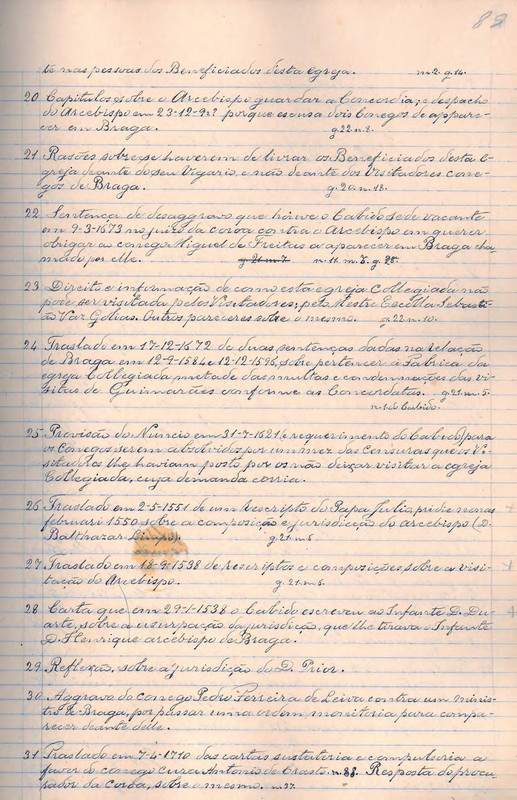 89
te nas pessoas dos Beneficiados desta egreja. n. 2. g. 14.
20 Capitulos sobre o Arcebispo guardar a Concordia; e despacho
do Arcebispo em 23-12-92? porque escusa dois Conegos de appare-
cer em Braga. g. 22. n. 2.
21 Rasões sobre se haverem de livrar os Beneficiados desta E-
greja deante do seu Vigario e não deante dos Visitadores cone-
gos de Braga. g. 20. n. 18.
22 Sentença de desaggravo que houve o Cabido sede vacante
em 9-3-1673 no juizo da coroa contra o Arcebispo em querer
obrigar ao conego Miguel de Freitas a aparecer em Braga cha-
mado por elle. g. 21. m. 7. n. 11. m. 7. g. 25.
23 Direito e informação de como esta egreja Collegiada não
pode ser visitada pelos Visitadores; pelo Mestre Escolla Sebasti-
ão Vaz Golias. Outros pareceres sobre o mesmo. g. 22 n. 10.
24 Traslado em 17-12-1672 de duas sentenças dadas na relação
de Braga em 12-9-1584 e 12-12-1596, sobre pertencer á Fabrica da
egreja Collegiada metade das multas e condemnações das vi-
sitas de Guimarães conforme as Concordatas. g. 21. m. 5.
n. 1 do Cabido.
25 Provisão do Nuncio em 31-7-1621 (e requerimento do Cabido) para
os Conegos serem absolvidos por um mez das censuras que os Vi-
sitadores lhe haviam posto por os não deixar visitar a egreja
Collegiada, cuja demanda corria.
26 Traslado em 2-5-1551 de um rescripto do Papa Julio, pridie nonas
februari 1550 sobre a composição e jurisdicção do arcebispo (D.
Balthazar Limpo). g. 21. m. 5
27 Traslado em 18-9-1538 de rescriptos e composições sobre a visi-
tação do Arcebispo. g. 21. m. 5.
28 Carta que em 29-1-1538 o Cabido escreveu ao Infante D. Du-
arte, sobre a usurpação da jurisdição, que lhe tirava o Infante
D. Henrique arcebispo de Braga.
29 Reflexão, sobre a jurisdição do D. Prior.
30 Aggravo do conego Pedro Ferreira de Leiva contra um minis-
tro de Braga, por passar uma ordem monitoria para compa-
recer deante delle.
31 Traslado em 7-4-1710 das cartas sustatoria e compulsoria a
favor do conego cura Antonio de Crasto. n. 38. Resposta do procu-
rador da Coroa, sobre o mesmo. n. 37.